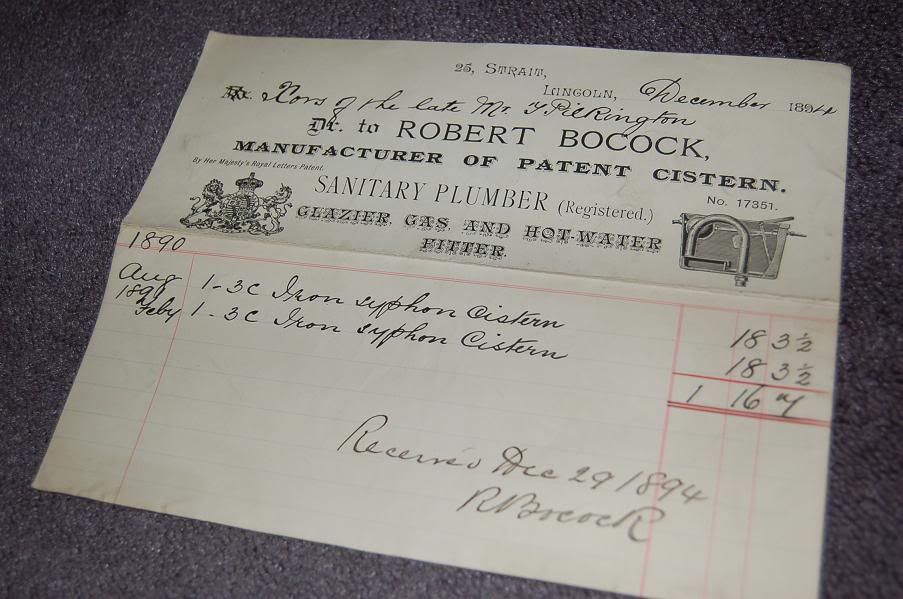 25, STRAIT,
LINCOLN, December 1894
Exors of the late Mr. J Pilkington
Dr. to ROBERT BOCOCK,
MANUFACTURER OF PATENT CISTERN.
By Her Majesty's Royal Letters Patent.
No. 17351.
SANITARY PLUMBER (Registered.)
GLAZIER, GAS, AND HOT-WATER
FITTER.
1890
Aug 1-3C Iron syphon Cistern 18 3½
1891
Feby 1-3C Iron syphon Cistern 18 3½
1 16 7
Received Dec 29 1894
R Bocock